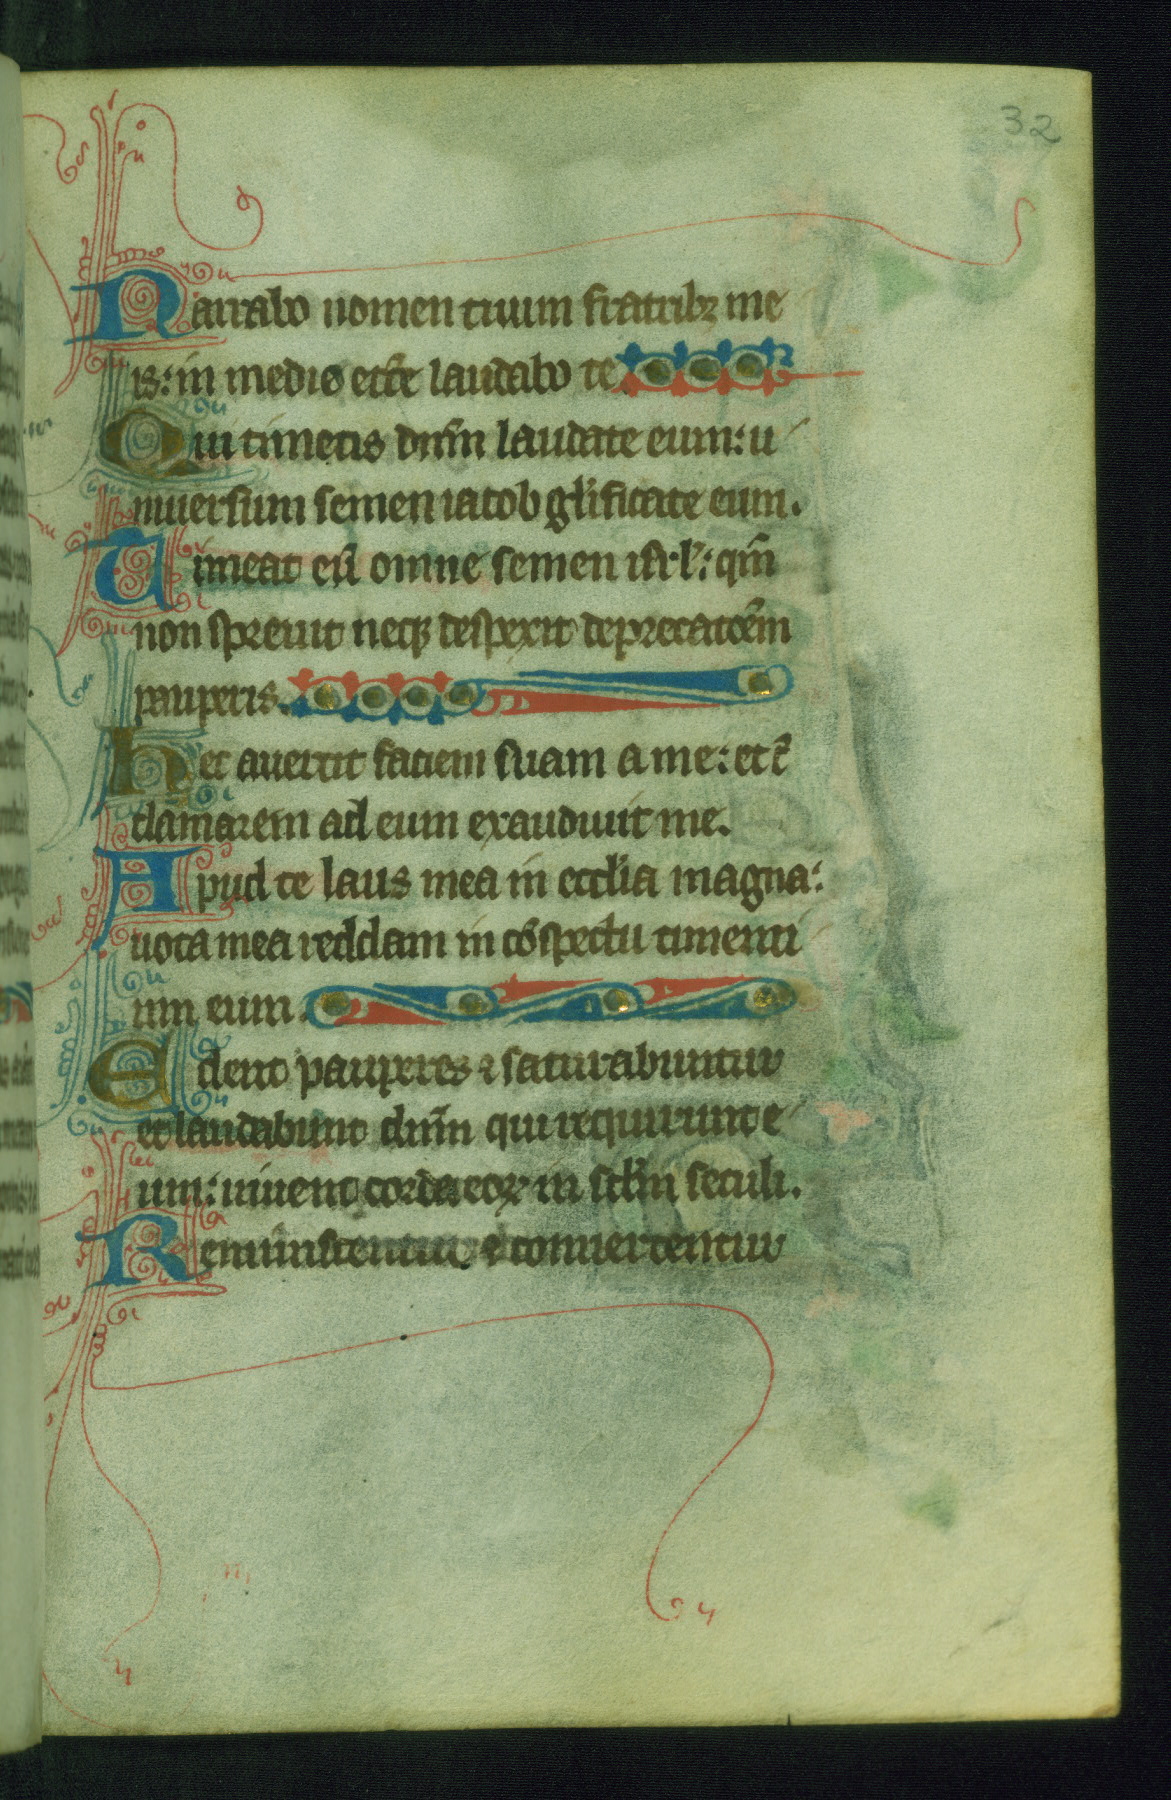 32
Narrabo nomen tuum fratribꝫ me
is: in medio eccͨe laudabo te
Qui timetis dn̄m laudate eum: u
niuersum semen iacob gl̄ificate eum.
Timeat eū omne semen isrl̄: qm̄
non spreuit neqꝫ despexit deprecatōem
pauperis.
Nec auertit faciem suam a me: et c̄
clamarem ad eum exaudiuit me.
Apud te laus mea in eccl̄ia magna:
uota mea reddam in cōspectu timenti
um eum.
Edent pauperes ⁊ saturabuntur
et laudabunt dn̄m qui requirunt e
um: uiuent corda eoꝝ in scl̄m seculi.
Reminiscentur ⁊ conuertentur